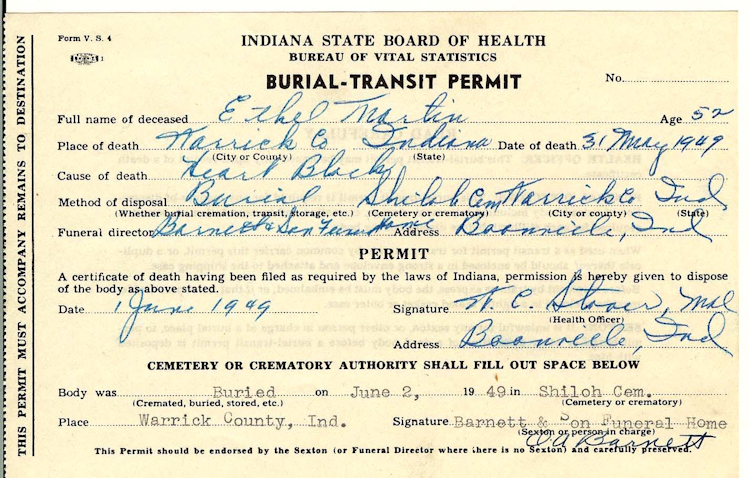 THIS PERMIT MUST ACCOMPANY REMAINS TO DESTINATION
Form V. S. 4
INDIANA STATE BOARD OF HEALTH
BUREAU OF VITAL STATISTICS
BURIAL-TRANSIT PERMIT
No.
Full name of deceased Ethel Martin Age 52
Place of death Warrick Co Indiana Date of death 31 May 1949
(City or County) (State)
Cause of death Heart Block
Method of disposal Burial Shiloh Cem Warrick Co Ind
(Whether burial cremation, transit, storage, etc.) (Cemetery or crematory) (City or county) (State)
Funeral director Barnett & Son Funeral Home Address Boonville, Ind
PERMIT
A certificate of death having been filed as required by the laws of Indiana, permission is hereby given to dispose
of the body as above stated.
Date 1 June 1949 Signature W. C. Stover, MD
(Health Officer)
Address Boonville, Ind
CEMETERY OR CREMATORY AUTHORITY SHALL FILL OUT SPACE BELOW
Body was Buried on June 2, 1949 in Shiloh Cem.
(Cremated, buried, stored, etc.) (Cemetery or crematory)
Place Warrick County, Ind. Signature Barnett & Son Funeral Home
(Sexton or person in charge)
Barnett
This Permit should be endorsed by the Sexton (or Funeral Director where there is no Sexton) and carefully preserved.